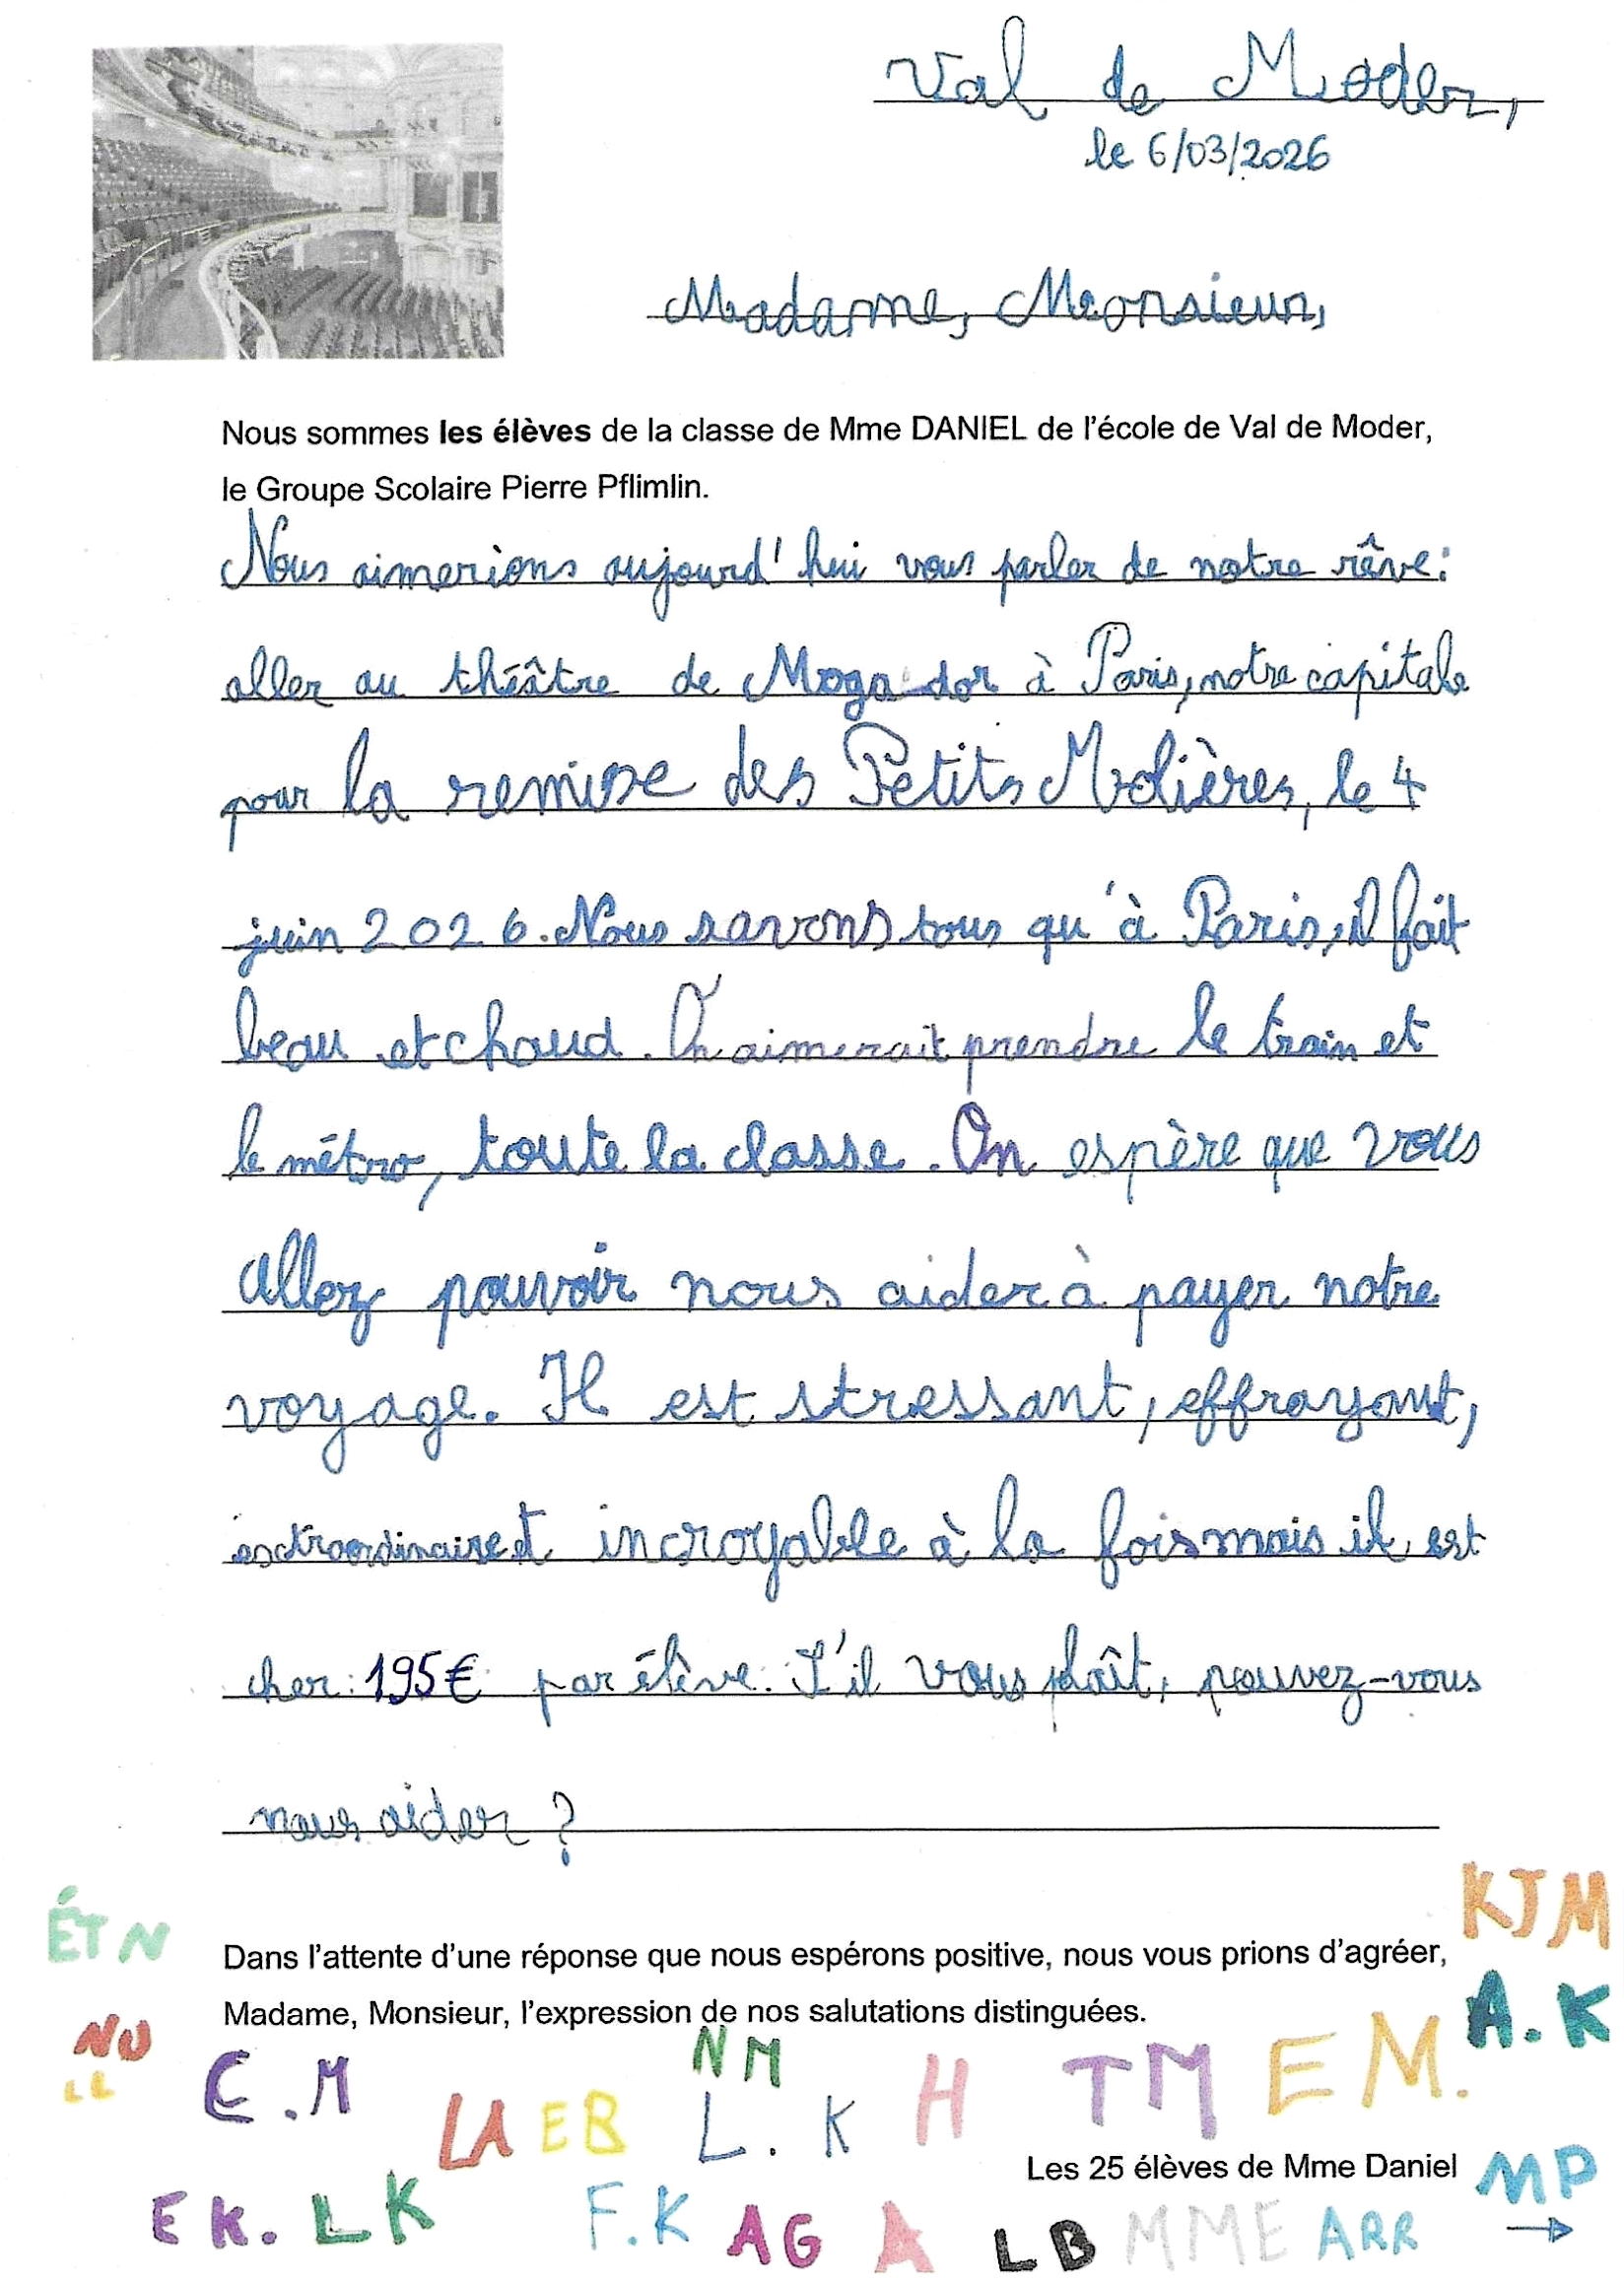 Val de Moder,
le 6/03/2026
Madame, Monsieur,
Nous sommes les élèves de la classe de Mme DANIEL de l'école de Val de Moder,
le Groupe Scolaire Pierre Pflimlin.
Nous aimerions aujourd'hui vous parler de notre rêve:
aller au théâtre de Mogador à Paris, notre capitale
pour la remise des Petits Molières, le 4
juin 2026. Nous savons tous qu'à Paris, il fait
beau et chaud. On aimerait prendre le train et
le métro, toute la classe. On espère que vous
allez pouvoir nous aider à payer notre
voyage. Il est stressant, effrayant,
extraordinaire et incroyable à la fois mais il est
cher: 195€ par élève. S'il vous plaît, pouvez-vous
nous aider ?
ÉTN
KJM
Dans l'attente d'une réponse que nous espérons positive, nous vous prions d'agréer,
Madame, Monsieur, l'expression de nos salutations distinguées.
A.K
NU
LL
E.M
LA
EB
NM
L.K
H
TM
EM.
Les 25 élèves de Mme Daniel
MP
EK.
LK
F.K
AG
A
LB
MME
ARR
→